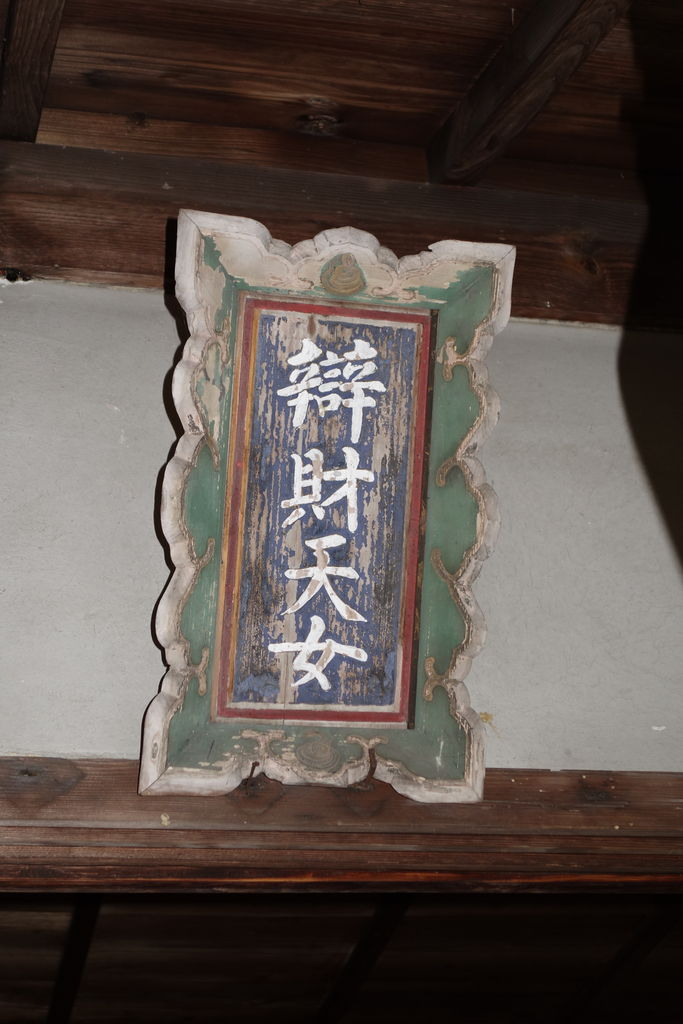 辯財天女